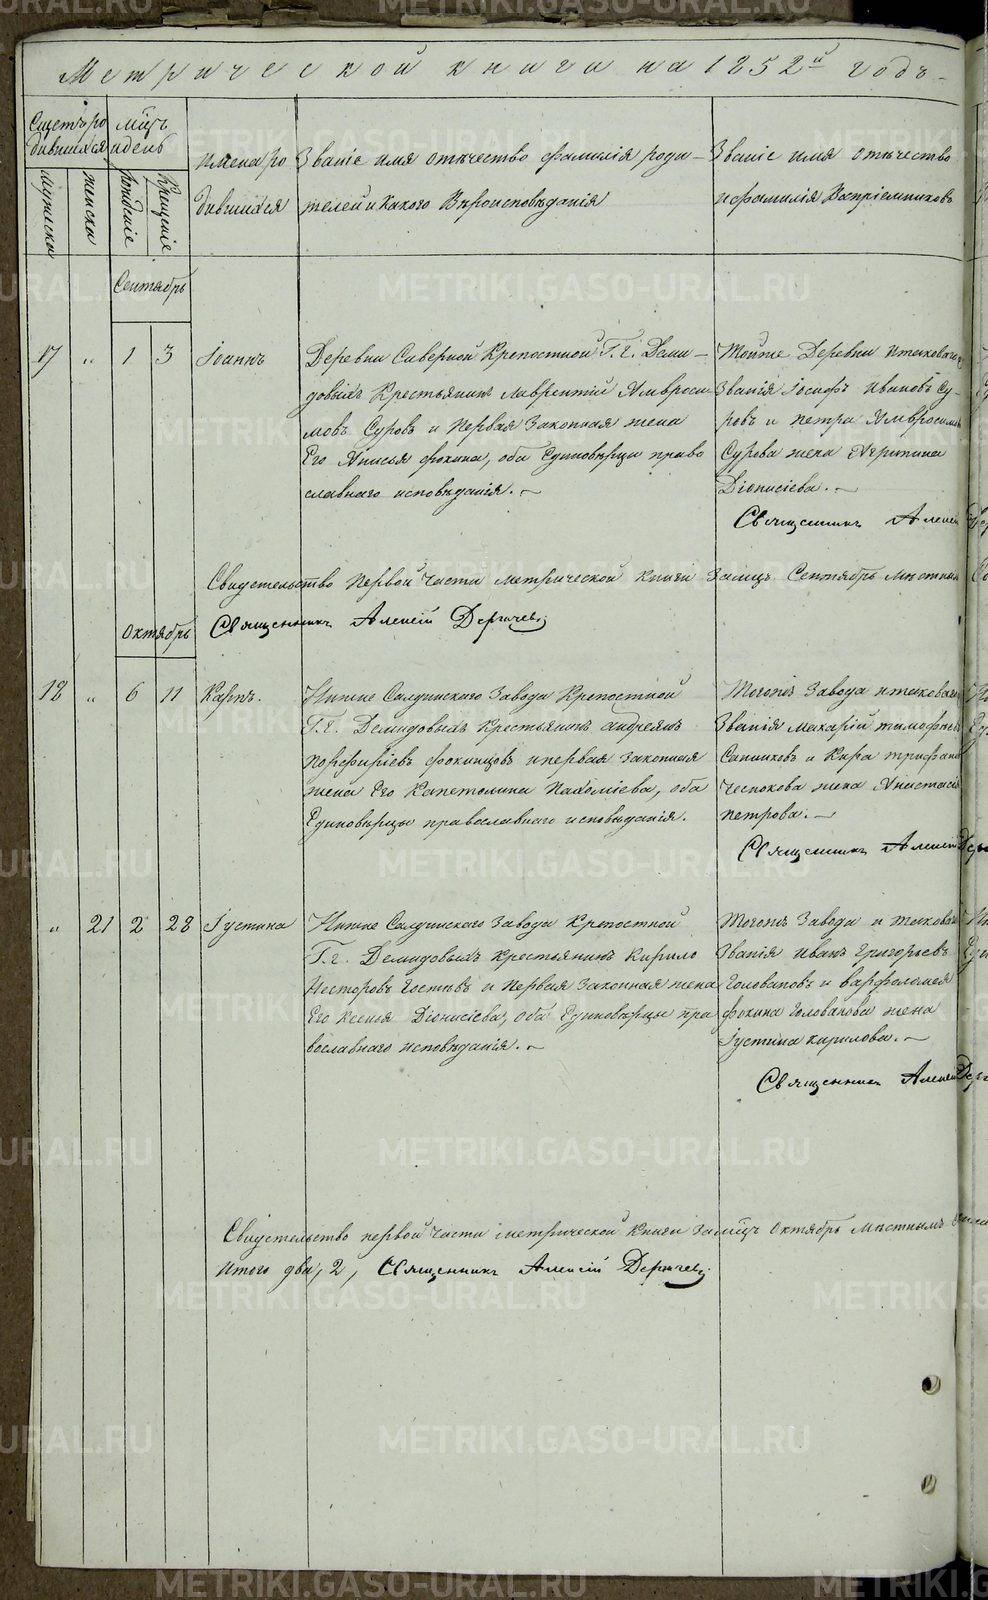 Метрической книги на 1852й годъ
Счетъ ро
дившихся
мѣцъ
и день
имена ро
дившихся
Званіе имя отчество фамилія роди
телей и какого Вѣроисповѣданія
Званіе имя отчество
и фамилія Воспріемниковъ
мужеска
женска
рожденіе
крещеніе
Сентябрь
17 „ 1 3 Іоаннъ
Деревни Северной Крепостной Г. г. Деми–
довыхъ Крестьянинъ Лаврентій Амвроси–
мовъ Суровъ и Первая Законная жена
Его Анисья Фокина, оба Единоверцы право
славнаго исповѣданія.
Тойже Деревни и таковаго
Званія Іосифъ Ивановъ Су–
ровъ и Петра Амвросимова
Сурова жена Агрипина
Діонисіева.
Священникъ Алексій
Свидетельство Первой Части метрической Книги За мѣцъ Сентябрь Местнымъ
Священникъ Алексій Дергачевъ
Октябрь
18 „ 6 11 Карпъ.
Нижне Салдинскаго Завода Крепостной
Г. г. Демидовыхъ Крестьянинъ Андреянъ
Порфиріевъ Фокинцовъ и первая законная
жена Его Капетолина Пахоміева, оба
Единоверцы православнаго исповѣданія.
Тогожъ Завода и таковаго
Званія Макарій Тимофѣевъ
и Кира Трифанова
Чеснокова жена Анастасія
Петрова.
Священникъ Алексій
„ 21 2 28 Іустина
Нижне Салдинскаго Завода Крепостной
Г. г. Демидовыхъ крестьянинъ Кирило
Несторовъ Гостевъ и Первая Законная жена
Его Ксенья Діонисіева, оба Единоверцы пра
вославнаго исповѣданія.
Тогожъ Завода и таковаго
Званія Иванъ Григорьевъ
Головановъ и Варфоломея
Фокина Голованова жена
Іустина Кирилова.
Священникъ Алексій
Свидетельство первой части метрической Книги За мѣцъ Октябрь Местнымъ
Итого два, 2, Священникъ Алексій Дергачевъ
METRIKI.GASO-URAL.RU